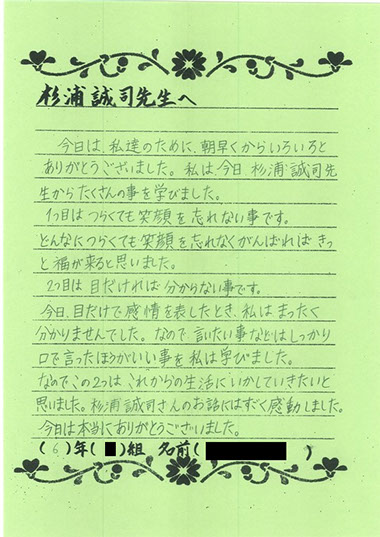 杉浦誠司先生へ
今日は、私達のために、朝早くからいろいろと
ありがとうございました。私は、今日、杉浦誠司先
生からたくさんの事を学びました。
1つ目はつらくても笑顔を忘れない事です。
どんなにつらくても笑顔を忘れなくがんばればきっ
と福が来ると思いました。
2つ目は目だけれは分からない事です。
今日、目だけで感情を表したとき、私はまったく
分かりませんでした。なので、言いたい事などはしっかり
口で言ったほうがいい事を私は学びました。
なのでこの2つはこれからの生活にいかしていきたいと
思いました。杉浦誠司さんのお話にはすごく感動しました。
今日は本当にありがとうございました。
(6)年( )組 名前( )